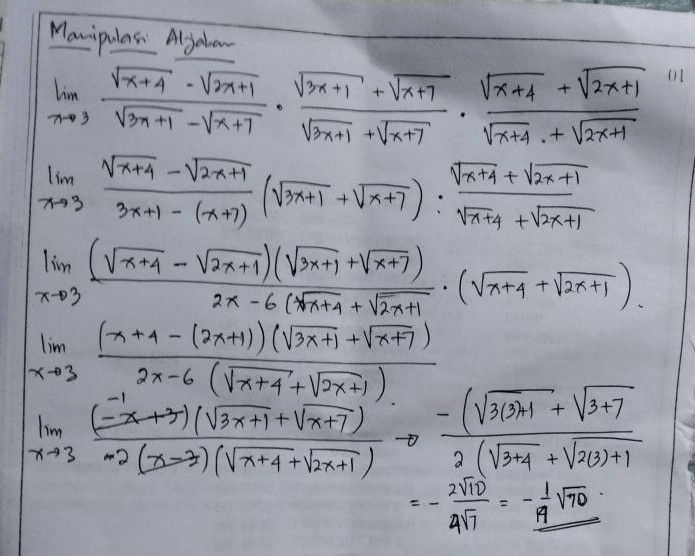 Manipulasi Aljabar
01
lim x→3 (√(x+4) - √(2x+1))/(√(3x+1) - √(x+7)) · (√(3x+1) + √(x+7))/(√(3x+1) + √(x+7)) · (√(x+4) + √(2x+1))/(√(x+4) + √(2x+1))
lim x→3 (√(x+4) - √(2x+1))/(3x+1 - (x+7)) (√(3x+1) + √(x+7)) : (√(x+4) + √(2x+1))/(√(x+4) + √(2x+1))
lim x→3 ((√(x+4) - √(2x+1))(√(3x+1) + √(x+7)))/(2x-6 (√(x+4) + √(2x+1)) · (√(x+4) + √(2x+1)).
lim x→3 ((x+4 - (2x+1))(√(3x+1) + √(x+7)))/(2x-6 (√(x+4) + √(2x+1)).
lim x→3 -1 ((-x+3)(√(3x+1) + √(x+7)))/(2(x-3)(√(x+4) + √(2x+1))) → -(√(3(3)+1) + √(3+7)/(2(√(3+4) + √(2(3)+1)
= - 2√10/4√7 = - 1/14 √70.